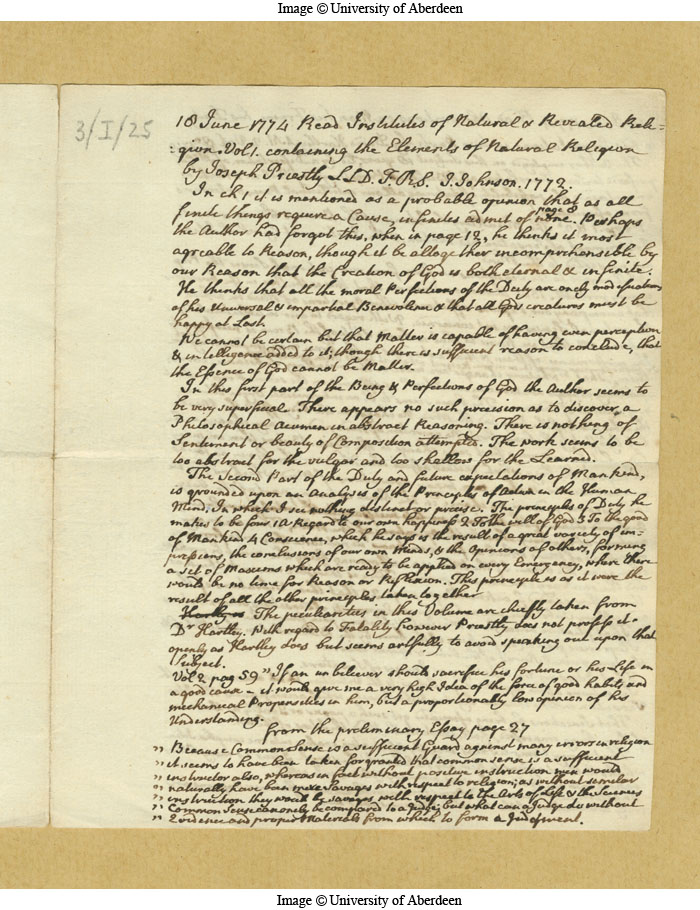 Image © University of Aberdeen
3/I/25
18 June 1774 Read Institutes of Natural & Revealed Reli=
=gion. Vol 1. containing the Elements of Natural Religion
by Joseph Priestly LLD. F.R.S. J. Johnson. 1772.
In ch 1 it is mentioned as a probable opinion that as all
finite things require a Cause, infinites admit of none. page 8 Perhaps
the Author had forgot this, when in page 12, he thinks it most
agreable to Reason, though it be altogether incomprehensible by
our Reason that the Creation of God is both eternal & infinite.
He thinks that all the moral Perfections of the Deity are onely modifications
of his Universal & impartial Benevolence & that all Gods creatures must be
happy at Last.
We cannot be certain but that Matter is capable of having even perception
& intelligence added to it; though there is sufficient reason to conclude, that
the Essence of God cannot be Matter.
In this first part of the Being & Perfections of God the Author seems to
be very superficial. There appears no such precision as to discover a
Philosophical Acumen in abstract Reasoning. There is nothing of
Sentiment or beauty of Composition attempted. The work seems to be
too abstract for the vulgar and too shallow for the Learned.
The Second Part of the Duty and future expectations of Mankind,
is grounded upon an Analysis of the Principles of Action in the Human
Mind, In which I see nothing distinct or precise. The principles of Duty he
makes to be four 1 A Regard to our own happiness 2 To the will of God 3 To the good
of Mankind 4 Conscience, which he says is the result of a great variety of im-
pressions, the conclusions of our own Minds, & the Opinions of others, forming
a set of Maxims which are ready to be applied on every Emergency, where there
would be no time for Reason or Reflexion. This principle is as it were the
result of all the other principles taken together
The peculiarities in this Volume are chiefly taken from
Dr Hartley. With regard to Fatality however Priestly does not profess it
openly as Hartley does but seems artfully to avoid speaking out upon that
Subject.
Vol 2 pag 59 " If an unbeliever should sacrifice his fortune or his Life in
a good cause - it would give me a very high Idea of the force of good habit, and
mechanical Propensities in him, but a proportionally low opinion of his
Understanding.
From the preliminary Essay page 27
" Because Common Sense is a sufficient Guard against many errors in religion
" it seems to have been taken for granted that common sense is a sufficient
" instructor also, whereas in fact without positive instruction men would
" naturally have been mere Savages with respect to religion; as without similar
" instruction they would be savages with respect to the Arts of Life & the Sciences
" Common Sense can onely be compared to a Judge; but what can a Judge do without
" Evidence and proper Materials from which to form a Judgment.
Image © University of Aberdeen